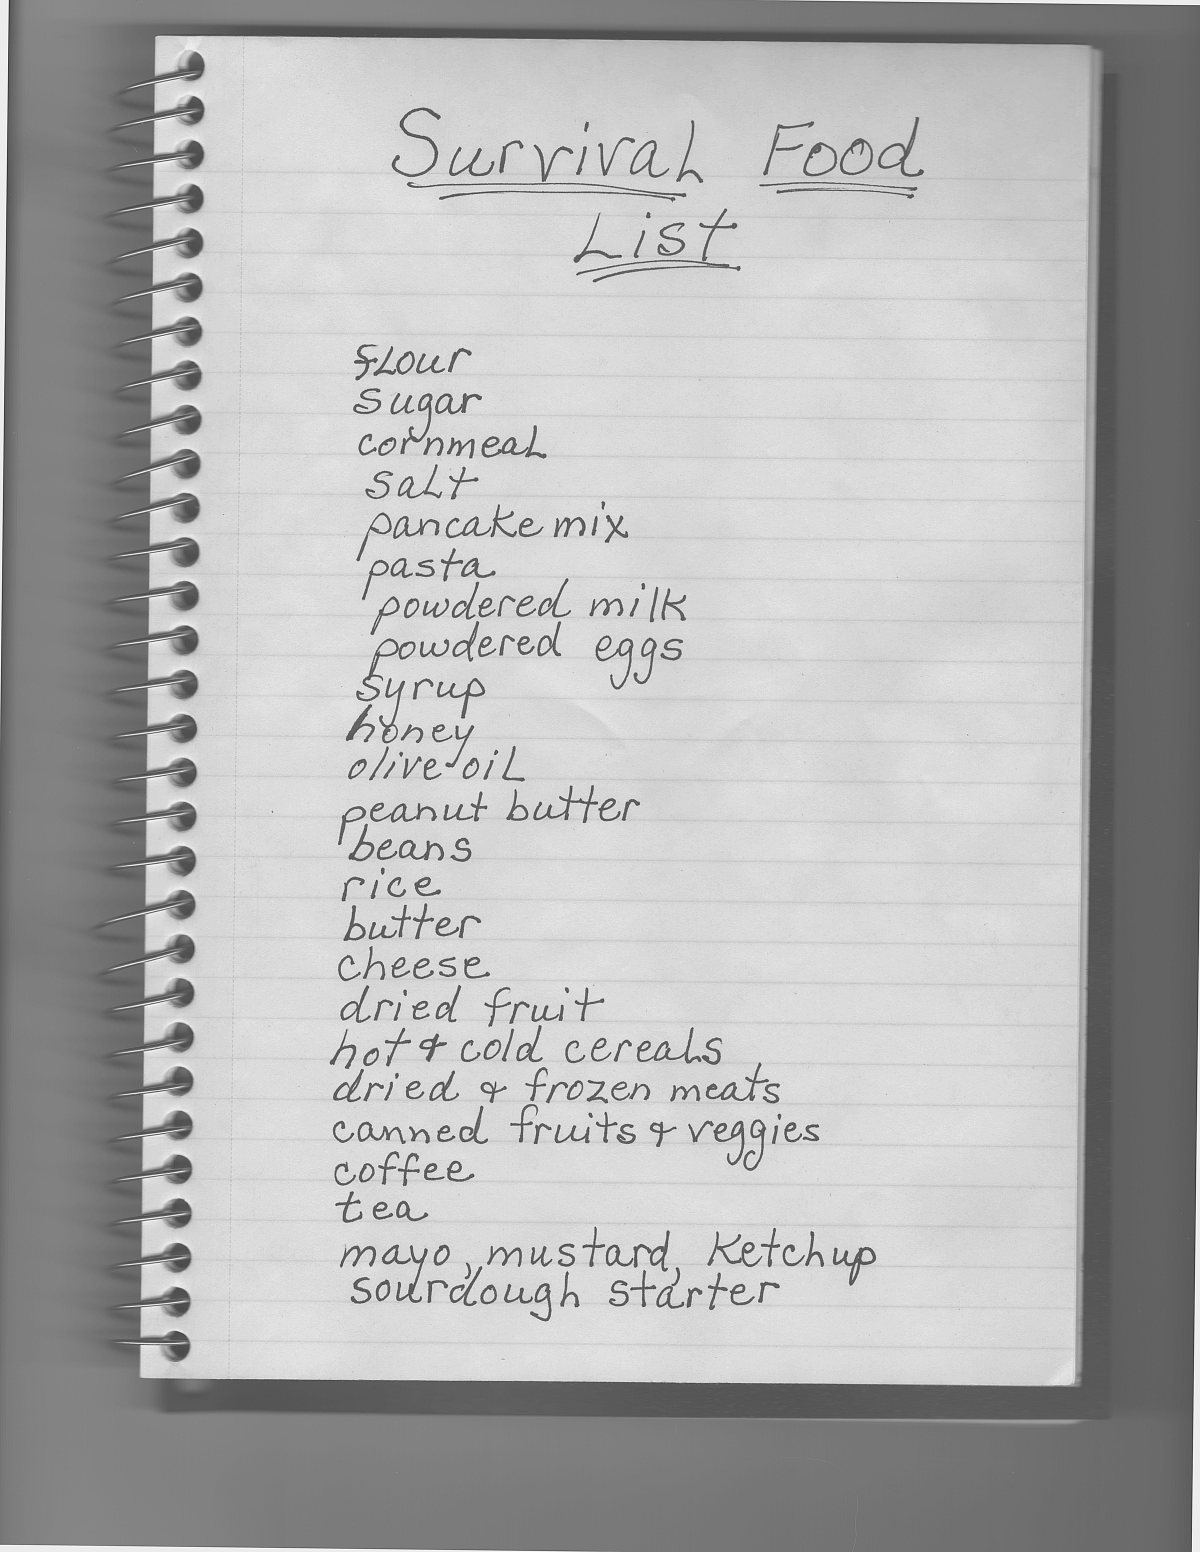 Survival Food
List
flour
sugar
cornmeal
salt
pancake mix
pasta
powdered milk
powdered eggs
syrup
honey
olive oil
peanut butter
beans
rice
butter
cheese
dried fruit
hot & cold cereals
dried & frozen meats
canned fruits & veggies
coffee
tea
mayo, mustard, Ketchup
sourdough starter